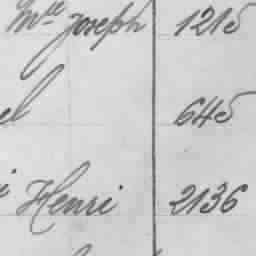 Mlle Joseph 1215
el 645
i Henri 2136